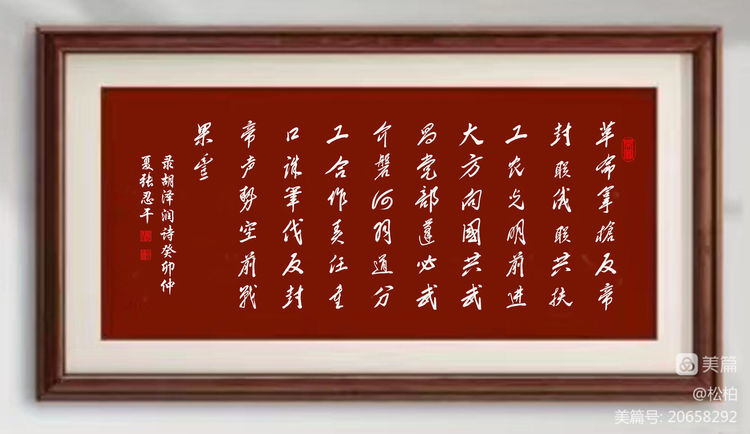 革命拿槍反帝
封联俄联共扶
工农光明前进
大方向國共武
昌党部董必武
介磐何羽道分
工合作责任重
口诛筆伐反封
帝声势空前战
果丰
录胡泽润诗癸卯仲
夏张忍平
美篇
@松柏
美篇号: 20658292